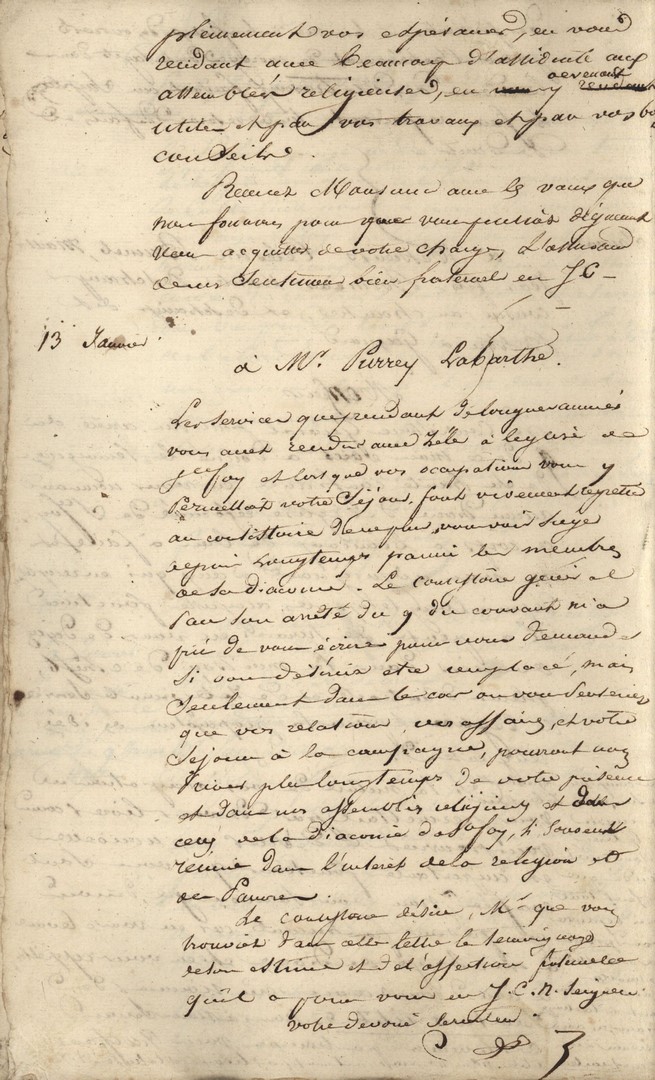 pleinement vos espérances, en vous
rendant avec beaucoup d'assiduité aux
assemblées religieuses, en y devenant
utiles et par vos travaux et par vos
conseils.
Recevez Monsieur avec les vœux que
nous formons pour que vous puissiez dignement
vous acquitter de votre charge, l'assurance
de nos sentimens bien fraternels en J C -
13 Janvier
à Mr. Purrey Labarthe.
Les services que pendant de longues années
vous avez rendu avec zèle à l'église de
Ste foy et lorsque vos occupations vous y
permettoit votre séjour, font vivement regretter
au consistoire de ne plus vous voir siéger
depuis longtemps parmi les membres
de sa diaconie. Le consistoire général
par son arrêté du 9 du courant m'a
prié de vous écrire pour vous demander
si vous désiriez être remplacé, mais
seulement dans le cas ou vous sentiriez
que vos relations, vos affaires, et votre
séjour à la campagne, pourront nous
priver plus longtemps de votre présence
et dans nos assemblées religieuses et dans
celles de la diaconie de Ste foy, si souvent
réunie dans l'interet de la religion et
des Pauvres.
Le consistoire désire, Mr que vous
trouviez dans cette lettre le temoignage
de son estime et de l'affection fraternelle
qu'il a pour vous en J. C. N. Seigneur
votre devoué serviteur